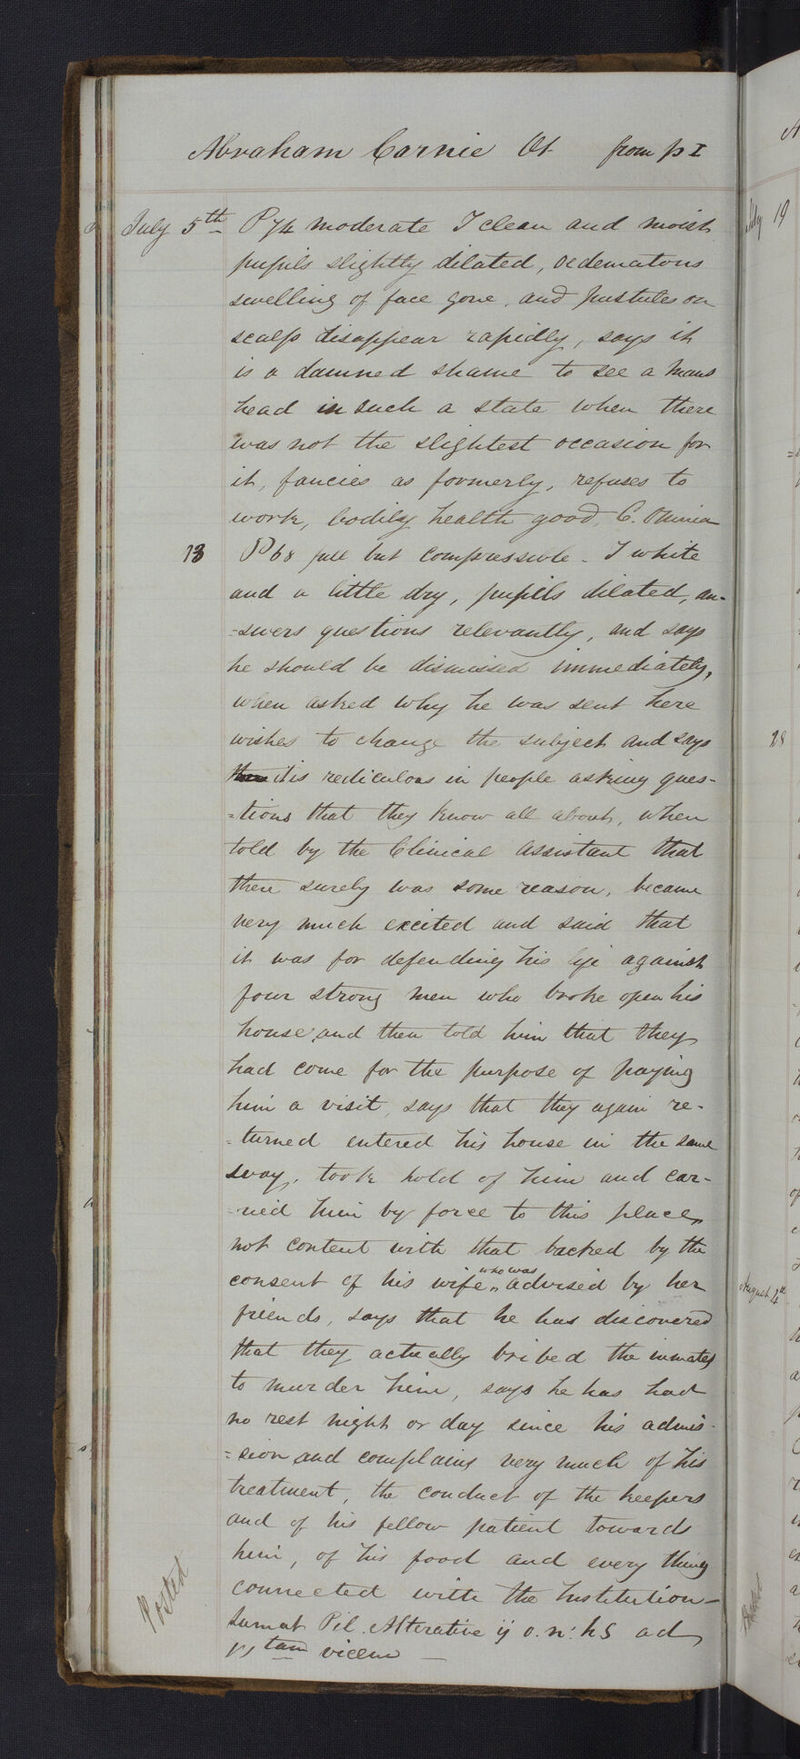 Abraham Carnie Ct from p I
July 5th P 74 moderate T clean and moist
pupils slightly dilated, oedematous
swelling of face gone, and pustules on
scalp disappear rapidly, says it
is a damned shame to see a mans
head in such a state when there
was not the slightest occasion for
it, fancies as formerly, refuses to
work, bodily health good, C. Omnia
13 P 68 full but compressible - T white
and a little dry, pupils dilated, an-
-swers questions relevantly, and says
he should be dismissed immediately,
when asked why he was sent here
wishes to change the subject and says
it is rediculous in people asking ques-
-tions that they know all about, when
told by the Clinical assistant that
there surely was some reason, became
very much excited and said that
it was for defending his life against
four strong men who broke open his
house, and then told him that they
had come for the purpose of paying
him a visit, says that they again re-
-turned entered his house in the same
way, took hold of him and car-
-ried him by force to this place,
not content with that backed by the
consent of his wife, who was advised by her
friends, says that he has discovered
that they actually bribed the inmates
to murder him, says he has had
no rest night or day since his admis-
-sion and complains very much of his
treatment, the conduct of the keepers
and of his fellow patient towards
him, of his food and every thing
connected with the Institution -
Sumat Pil. Alterative ij o. n. h S ad
tam vicem -
Posted
July 19
28
August 4th